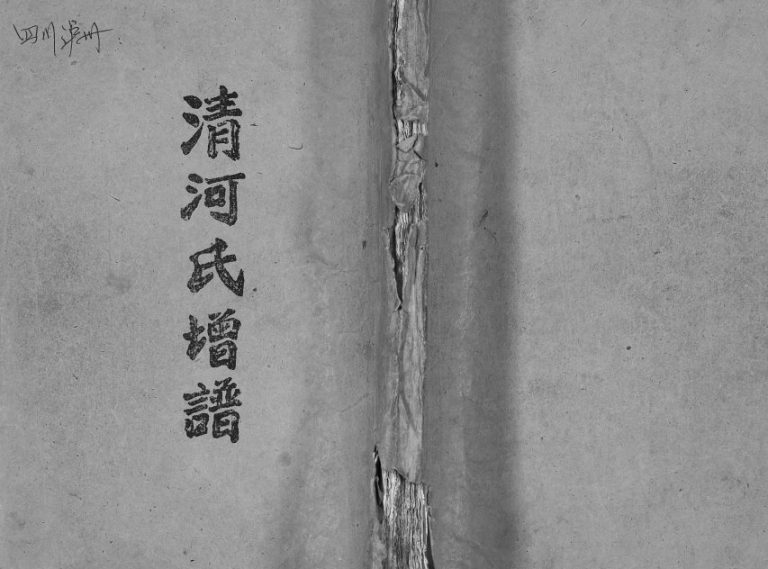 四川瀘州
清河氏增譜